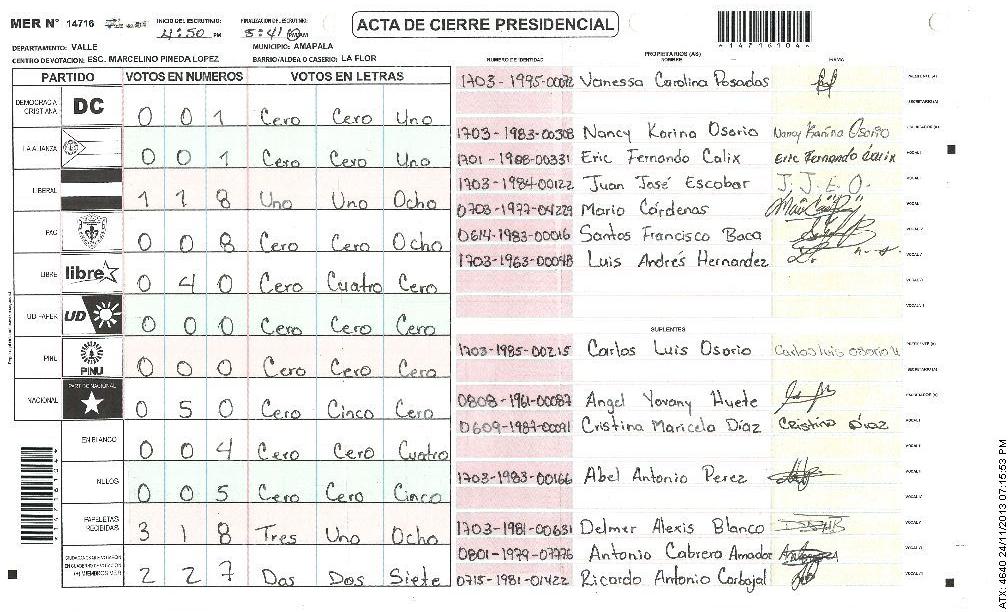 MER N° 14716 INICIO DEL ESCRUTINIO: 4:50 PM FINALIZACION DEL ESCRUTINIO: 5:41 ACTA DE CIERRE PRESIDENCIAL
DEPARTAMENTO: VALLE MUNICIPIO: AMAPALA
CENTRO DE VOTACION: ESC. MARCELINO PINEDA LOPEZ BARRIO/ALDEA O CASERIO: LA FLOR
PARTIDO VOTOS EN NUMEROS VOTOS EN LETRAS
DEMOCRACIA CRISTIANA DC 0 0 1 Cero Cero Uno
LA ALIANZA 0 0 1 Cero Cero Uno
LIBERAL 1 1 8 Uno Uno Ocho
PAC 0 0 8 Cero Cero Ocho
LIBRE libre 0 4 0 Cero Cuatro Cero
UD FAPER UD 0 0 0 Cero Cero Cero
PINU PINU 0 0 0 Cero Cero Cero
NACIONAL PARTIDO NACIONAL 0 5 0 Cero Cinco Cero
EN BLANCO 0 0 4 Cero Cero Cuatro
NULOS 0 0 5 Cero Cero Cinco
PAPELETAS RECIBIDAS 3 1 8 Tres Uno Ocho
(+) MIEMBROS MER 2 2 7 Dos Dos Siete
*14716104*
NUMERO DE IDENTIDAD PROPIETARIOS (AS) NOMBRE FIRMA
1703-1995-00072 Vanessa Carolina Posadas
1703-1983-00308 Nancy Karina Osorio Nancy Karina Osorio
1701-1988-00331 Eric Fernando Calix Eric Fernando Calix
1703-1984-00122 Juan José Escobar J. J. E. O.
0703-1977-04229 Mario Cárdenas
0614-1983-00016 Santos Francisco Baca
1703-1963-00048 Luis Andrés Hernandez
SUPLENTES
1703-1985-00215 Carlos Luis Osorio Carlos luis osorio
0808-1961-00087 Angel Yovany Huete
0609-1987-00091 Cristina Maricela Díaz Cristina Díaz
1703-1983-00166 Abel Antonio Perez
1703-1981-00631 Delmer Alexis Blanco
0801-1979-07776 Antonio Cabrera Amador
0715-1981-01422 Ricardo Antonio Carbajal
ATX: 4640 24/11/2013 07:15:53 PM